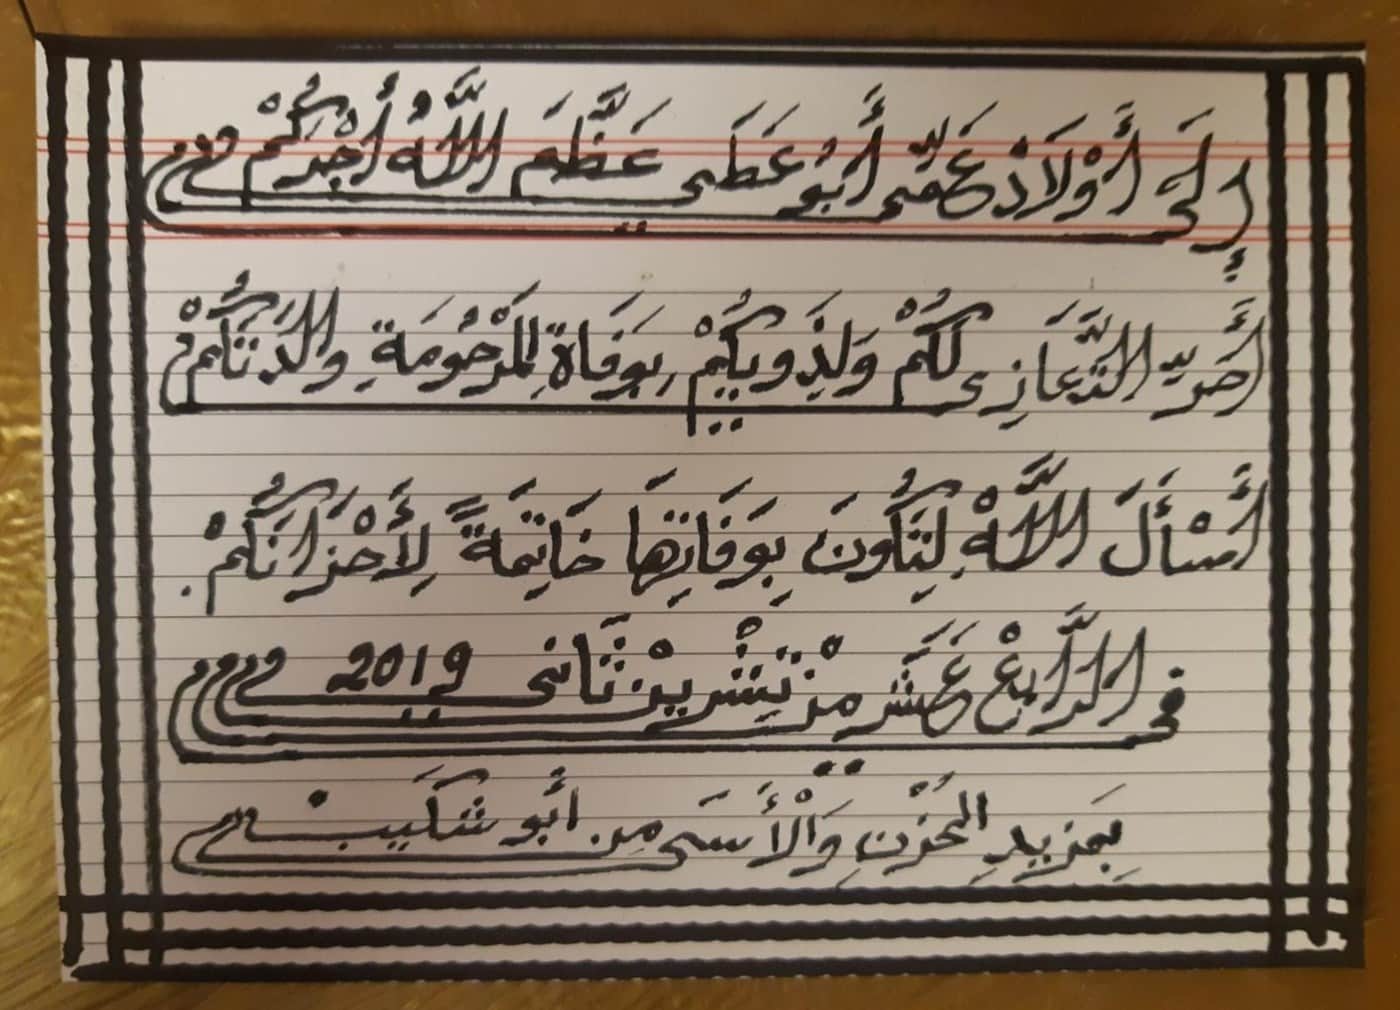 إِلَى أَوْلَادْ عَمِّي أَبُو عَطَى عَظَّمَ اللَّهُ أَجْرَكُمْ
أَحَرِّ التَّعَازِي لَكُمْ وَلِذَوِيكُمْ بِوَفَاةِ الْمَرْحُومَةِ والِدَتَكُمْ
أَسْأَلَ اللَّهْ لِتَكُونَ بِوَفَاتِهَا خَاتِمَةً لِأَحْزَانَكُمْ.
في الرَّابِعْ عَشَر مِنْ تِشْرِينْ ثَاني 2019
بِمَزِيدِ الحُزْنِ وَالْأَسَى مِن أَبُو شَكِيبْ